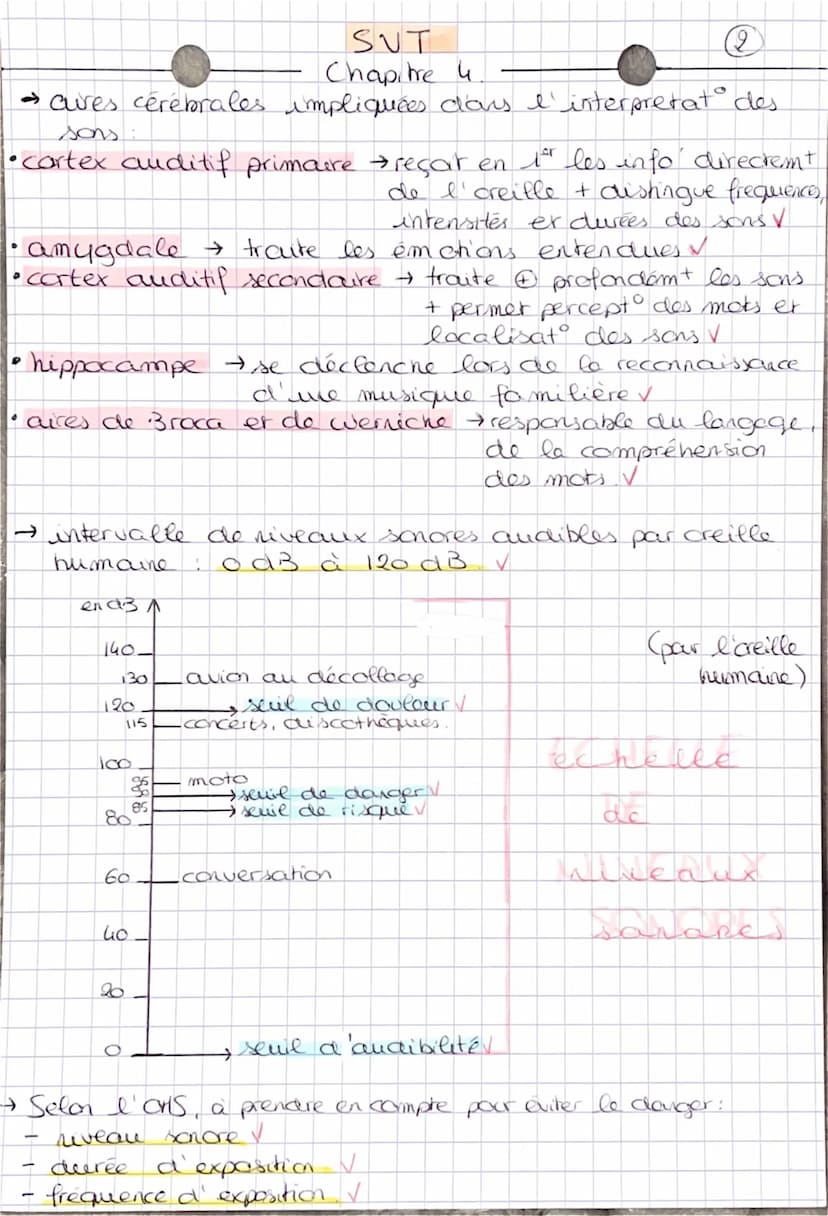 SVT
②
Chapitre 4.
→ aires cérébrales impliquées dans l'interpretat° des
sons :
• cortex auditif primaire → reçoit en 1er les info directemt
de l'oreille + distingue frequences,
intensités et durées des sons ✓
• amygdale → traite les émotions entendues ✓
• cortex auditif secondaire → traite ⊕ profondémt les sons
+ permet percept° des mots et
localisat° des sons ✓
• hippocampe → se déclenche lors de la reconnaissance
d'une musique familière ✓
• aires de Broca et de Werniche → responsable du langage,
de la compréhension
des mots. ✓
→ intervalle de niveaux sonores audibles par oreille
humaine : 0 dB à 120 dB ✓
en dB
140
130 avion au décollage
120 → seuil de douleur ✓
115 concerts, discothèques.
100
95 moto
90 → seuil de danger ✓
85 → seuil de risque ✓
80
60 conversation
40
20
0 → seuil d'audibilité ✓
(par l'oreille
humaine)
ECHELLE
de
NIVEAUX
SONORES
→ Selon l'OMS, à prendre en compte pour éviter le danger :
- niveau sonore ✓
- durée d'exposition ✓
- fréquence d'exposition. ✓